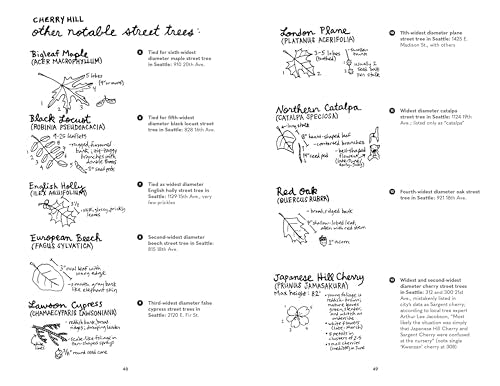 CHERRY HILL
other notable street trees:
Bigleaf Maple
(ACER MACROPHYLLUM)
5 lobes
Tied for sixth-widest
diameter maple street tree
in Seattle: 910 20th Ave.
Black Locust
(ROBINIA PSEUDOACACIA)
9-25 leaflets
Tied for fifth-widest
diameter black locust street
tree in Seattle: 828 16th Ave.
English Holly
(ILEX AQUIFOLIUM)
Tied as widest diameter
English holly street tree in
Seattle: 1129 15th Ave., very
few prickles
European Beech
(FAGUS SYLVATICA)
3" oval leaf with
wavy edge
smooth gray bark
like elephant skin
Second-widest diameter
beech street tree in Seattle:
815 18th Ave.
Lawson Cypress
(CHAMAECYPARIS LAWSONIANA)
scale-like foliage in
fan-shaped sprays
round seed cone
Third-widest diameter false
cypress street trees in
Seattle: 2120 E. Fir St.
48
London Plane
(PLATANUS ACERIFOLIA)
3-5 lobes
(toothed)
usually 2
seed balls
per stalk
11th-widest diameter plane
street tree in Seattle: 1425 E.
Madison St., with others
Northern Catalpa
(CATALPA SPECIOSA)
long stalk
8" heart-shaped leaf
contorted branches
bell-shaped
flowers
14" seed pod
Widest diameter catalpa
street tree in Seattle: 1124 19th
Ave.; listed only as "catalpa"
Red Oak
(QUERCUS RUBRA)
broad, ridged bark
9" shallow-lobed leaf,
often with red stem
1" acorn
Fourth-widest diameter oak street
tree in Seattle: 921 18th Ave.
Japanese Hill Cherry
(PRUNUS JAMASAKURA)
Max height: 82'
young foliage is
reddish-brown,
mature leaves
green, slender,
and whitish on
underside
white flowers
5 petals in
clusters of 2-5
small cherries
Widest and second-widest
diameter cherry street trees
in Seattle: 312 and 300 21st
Ave., mistakenly listed in
city's data as Sargent cherry;
according to local tree expert
Arthur Lee Jacobson, "Most
likely the situation was simply
that Japanese Hill Cherry and
Sargent Cherry were confused
at the nursery" (note single
'Kwanzan' cherry at 308).
49